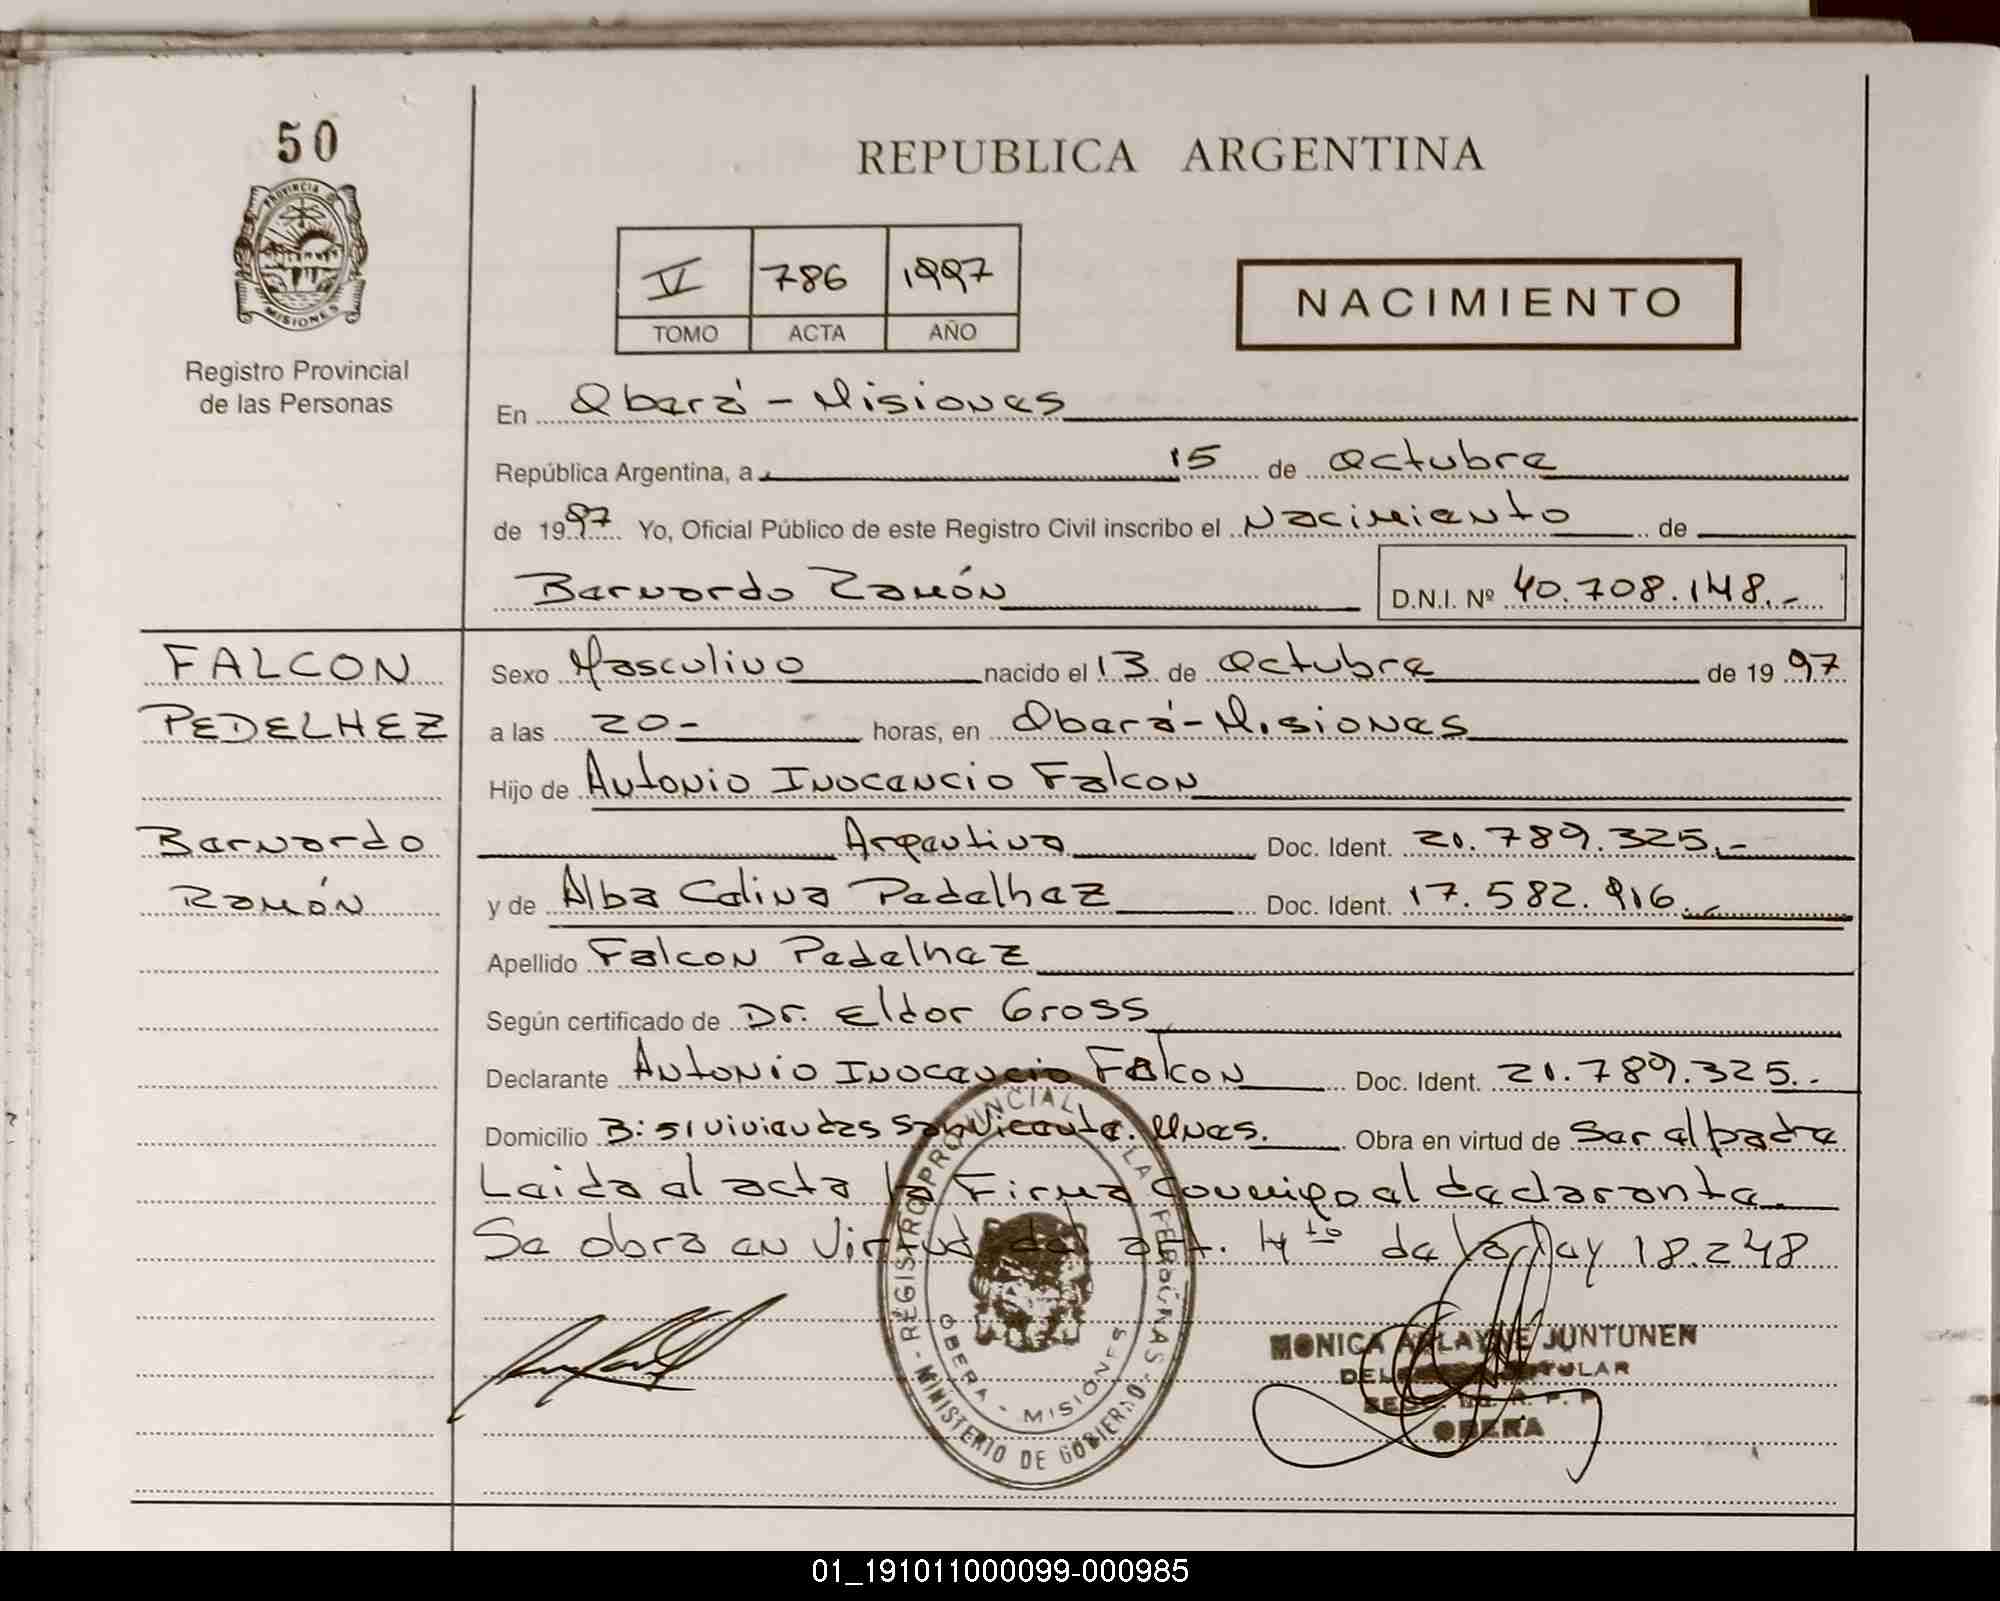 50
PROVINCIA
MISIONES
Registro Provincial
de las Personas
REPUBLICA ARGENTINA
V 786 1997
TOMO ACTA AÑO
NACIMIENTO
En Oberá - Misiones
República Argentina, a 15 de Octubre
de 1997 Yo, Oficial Público de este Registro Civil inscribo el Nacimiento de
Bernardo Ramón D.N.I. Nº 40.708.148.-
FALCON
PEDELHEZ
Bernardo
Ramón
Sexo Masculino nacido el 13 de Octubre de 1997
a las 20- horas, en Oberá - Misiones
Hijo de Antonio Inocencio Falcon
Argentino Doc. Ident. 21.789.325.-
y de Alba Celina Pedelhez Doc. Ident. 17.582.916.-
Apellido Falcon Pedelhez
Según certificado de Dr. Eldor Gross
Declarante Antonio Inocencio Falcon Doc. Ident. 21.789.325.-
Domicilio B: 51 viviendas San Vicente. Mnes. Obra en virtud de Ser el padre
Leida el acta la Firma conmigo el declarante.
Se obra en Virtud del art. 4to de la Ley 18.248
REGISTRO PROVINCIAL LAS PERSONAS
MINISTERIO DE GOBIERNO
OBERA - MISIONES
MONICA JUNTUNEN
TITULAR
OBERA
01_191011000099-000985